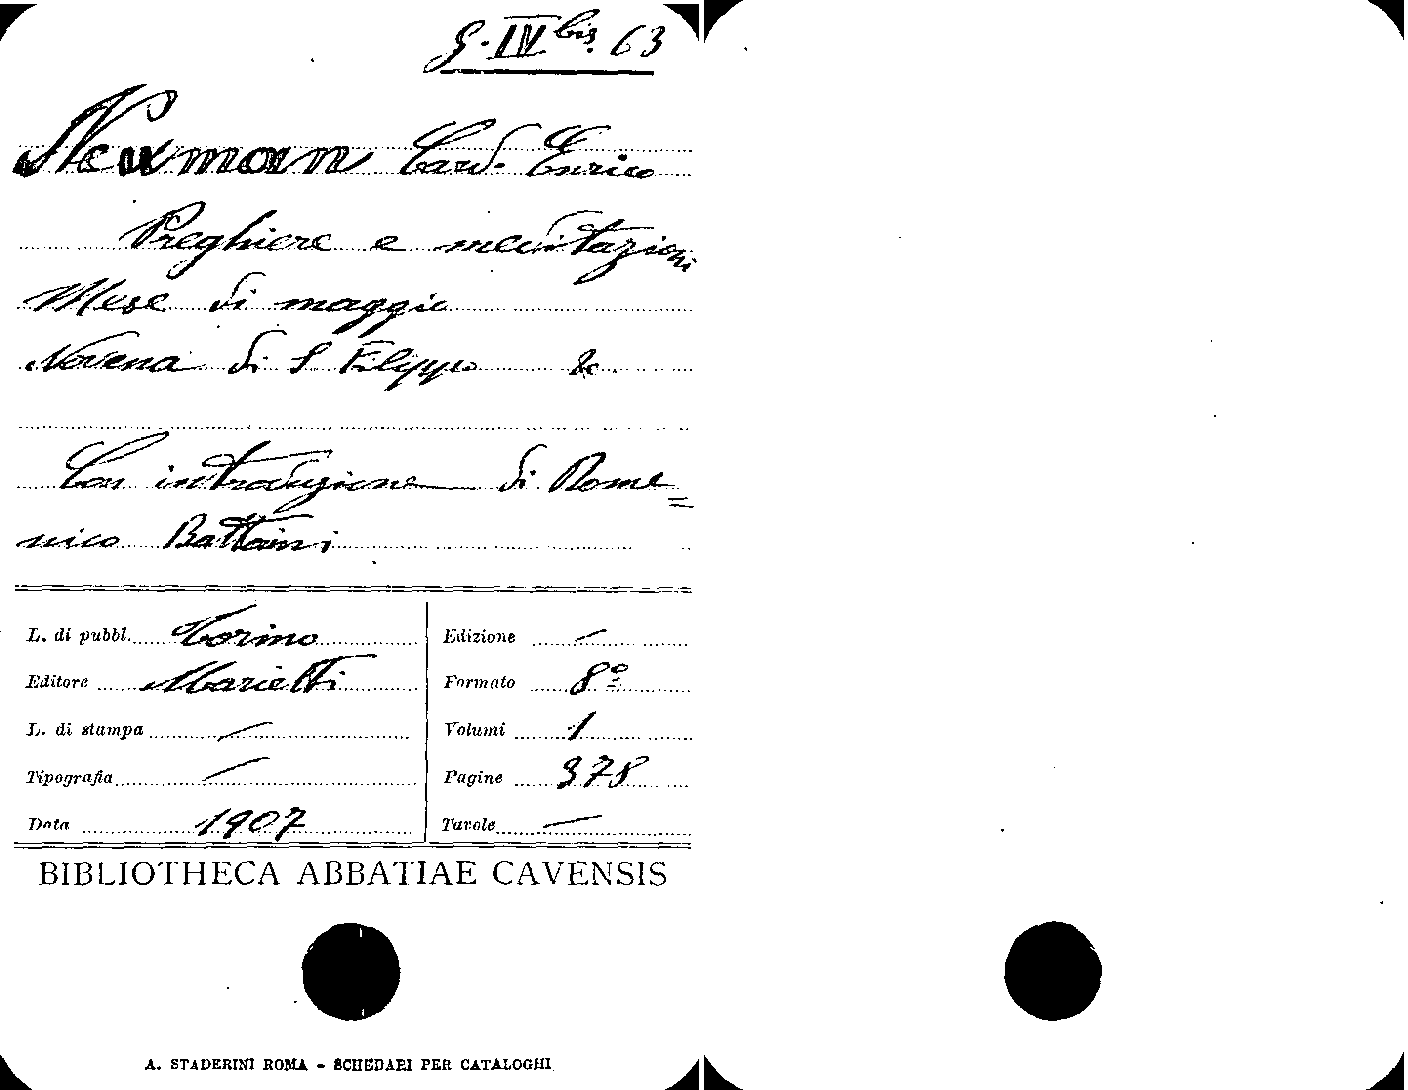 G. IV bis. 63
Newman Card. Enrico
Preghiere e meditazioni
Mese di maggio
Novena di S Filippo &c.
Con introduzione di Dome=
nico Battaini
L. di pubbl. Torino
Editore Marietti
L. di stampa —
Tipografia —
Data 1907
Edizione —
Formato 8º
Volumi 1
Pagine 378
Tavole —
BIBLIOTHECA ABBATIAE CAVENSIS
A. STADERINI ROMA - SCHEDARI PER CATALOGHI